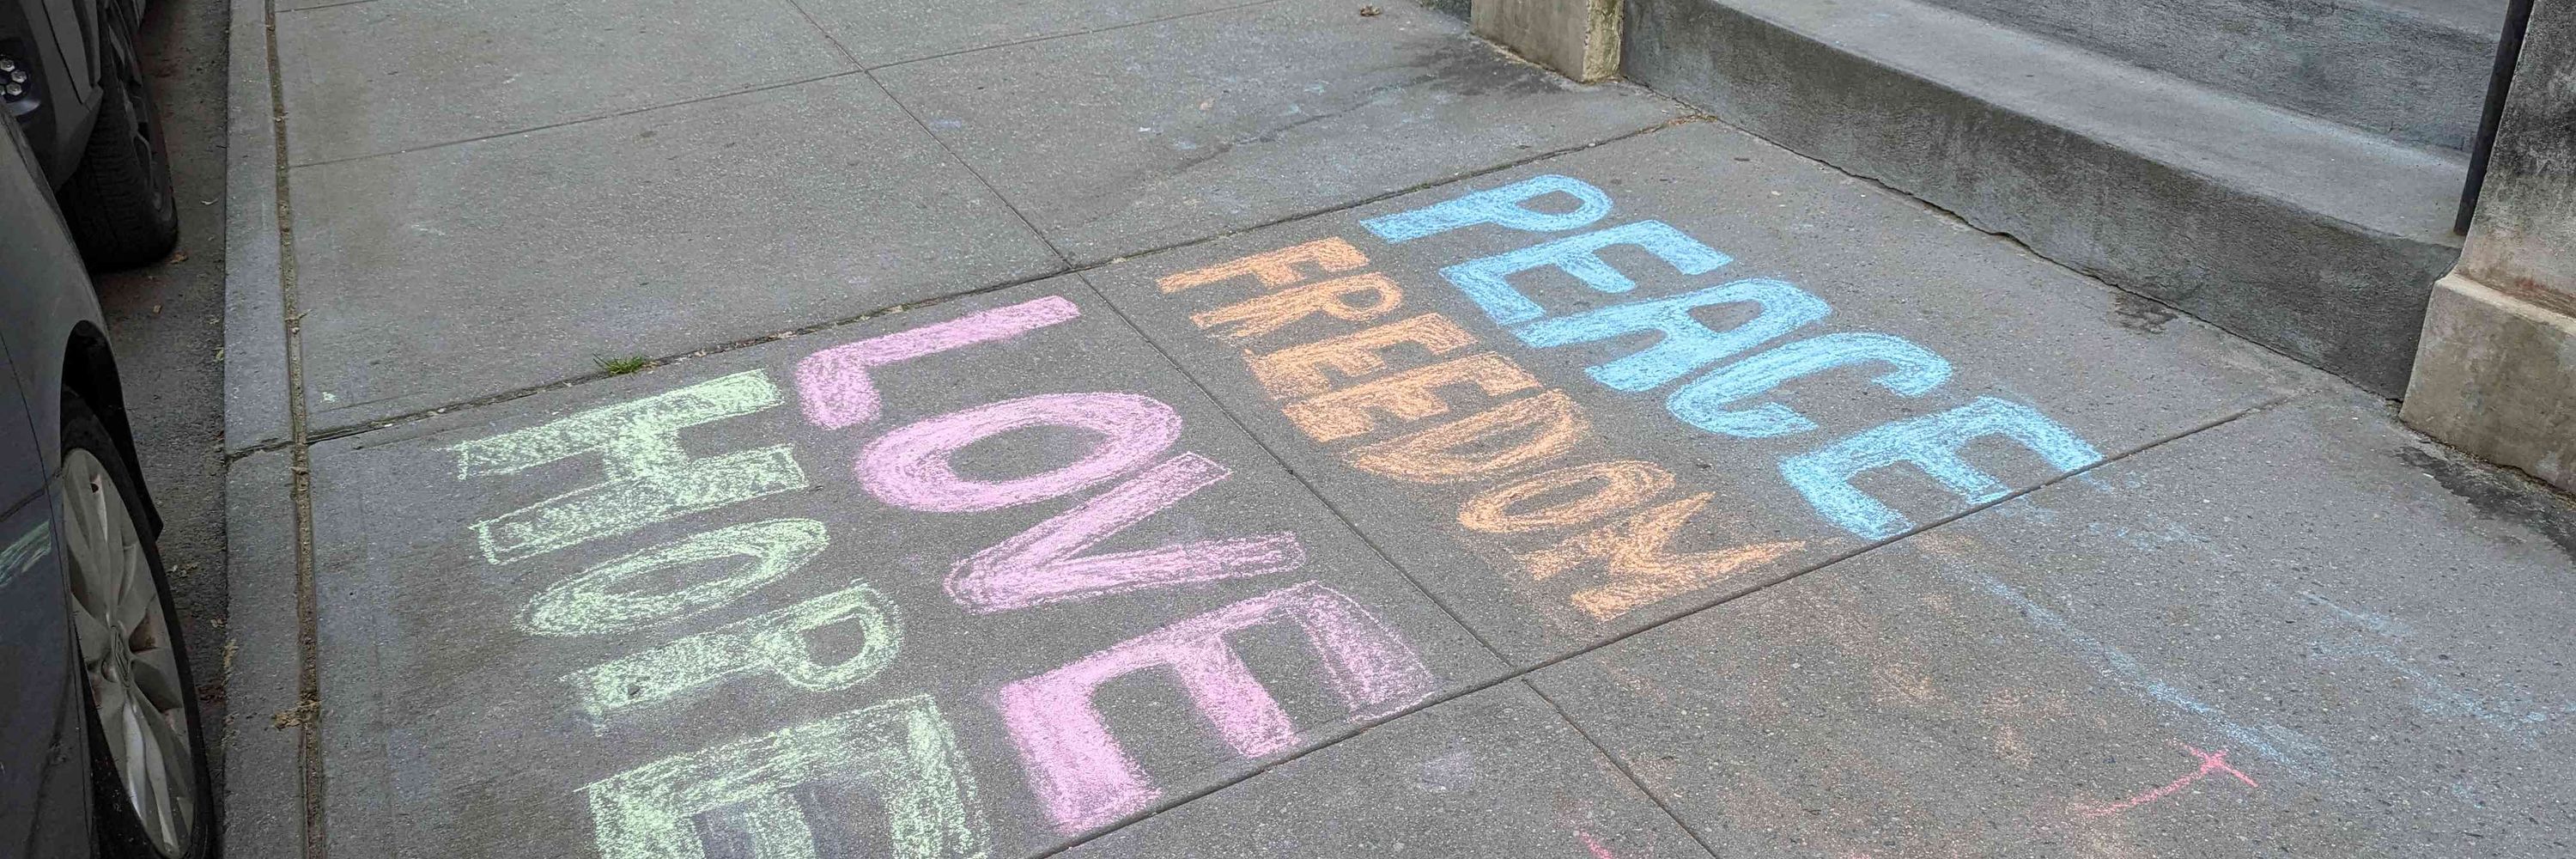 PEACE
FREEDOM
LOVE
HOPE